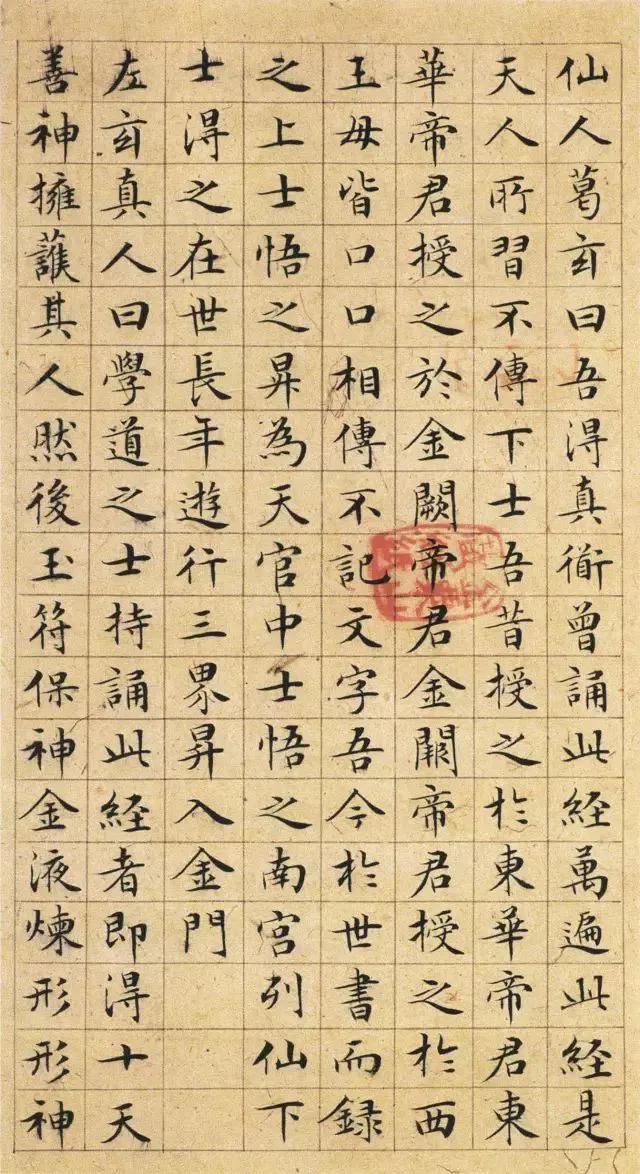 仙人葛玄曰吾得真衜曾誦此経萬遍此経是
天人所習不傳下士吾昔授之於東華帝君東
華帝君授之於金闕帝君金闕帝君授之於西
王母皆口口相傳不記文字吾今於世書而録
之上士悟之昇為天官中士悟之南宮列仙下
士得之在世長年遊行三界昇入金門
左玄真人曰學道之士持誦此経者即得十天
善神擁護其人然後玉符保神金液煉形形神